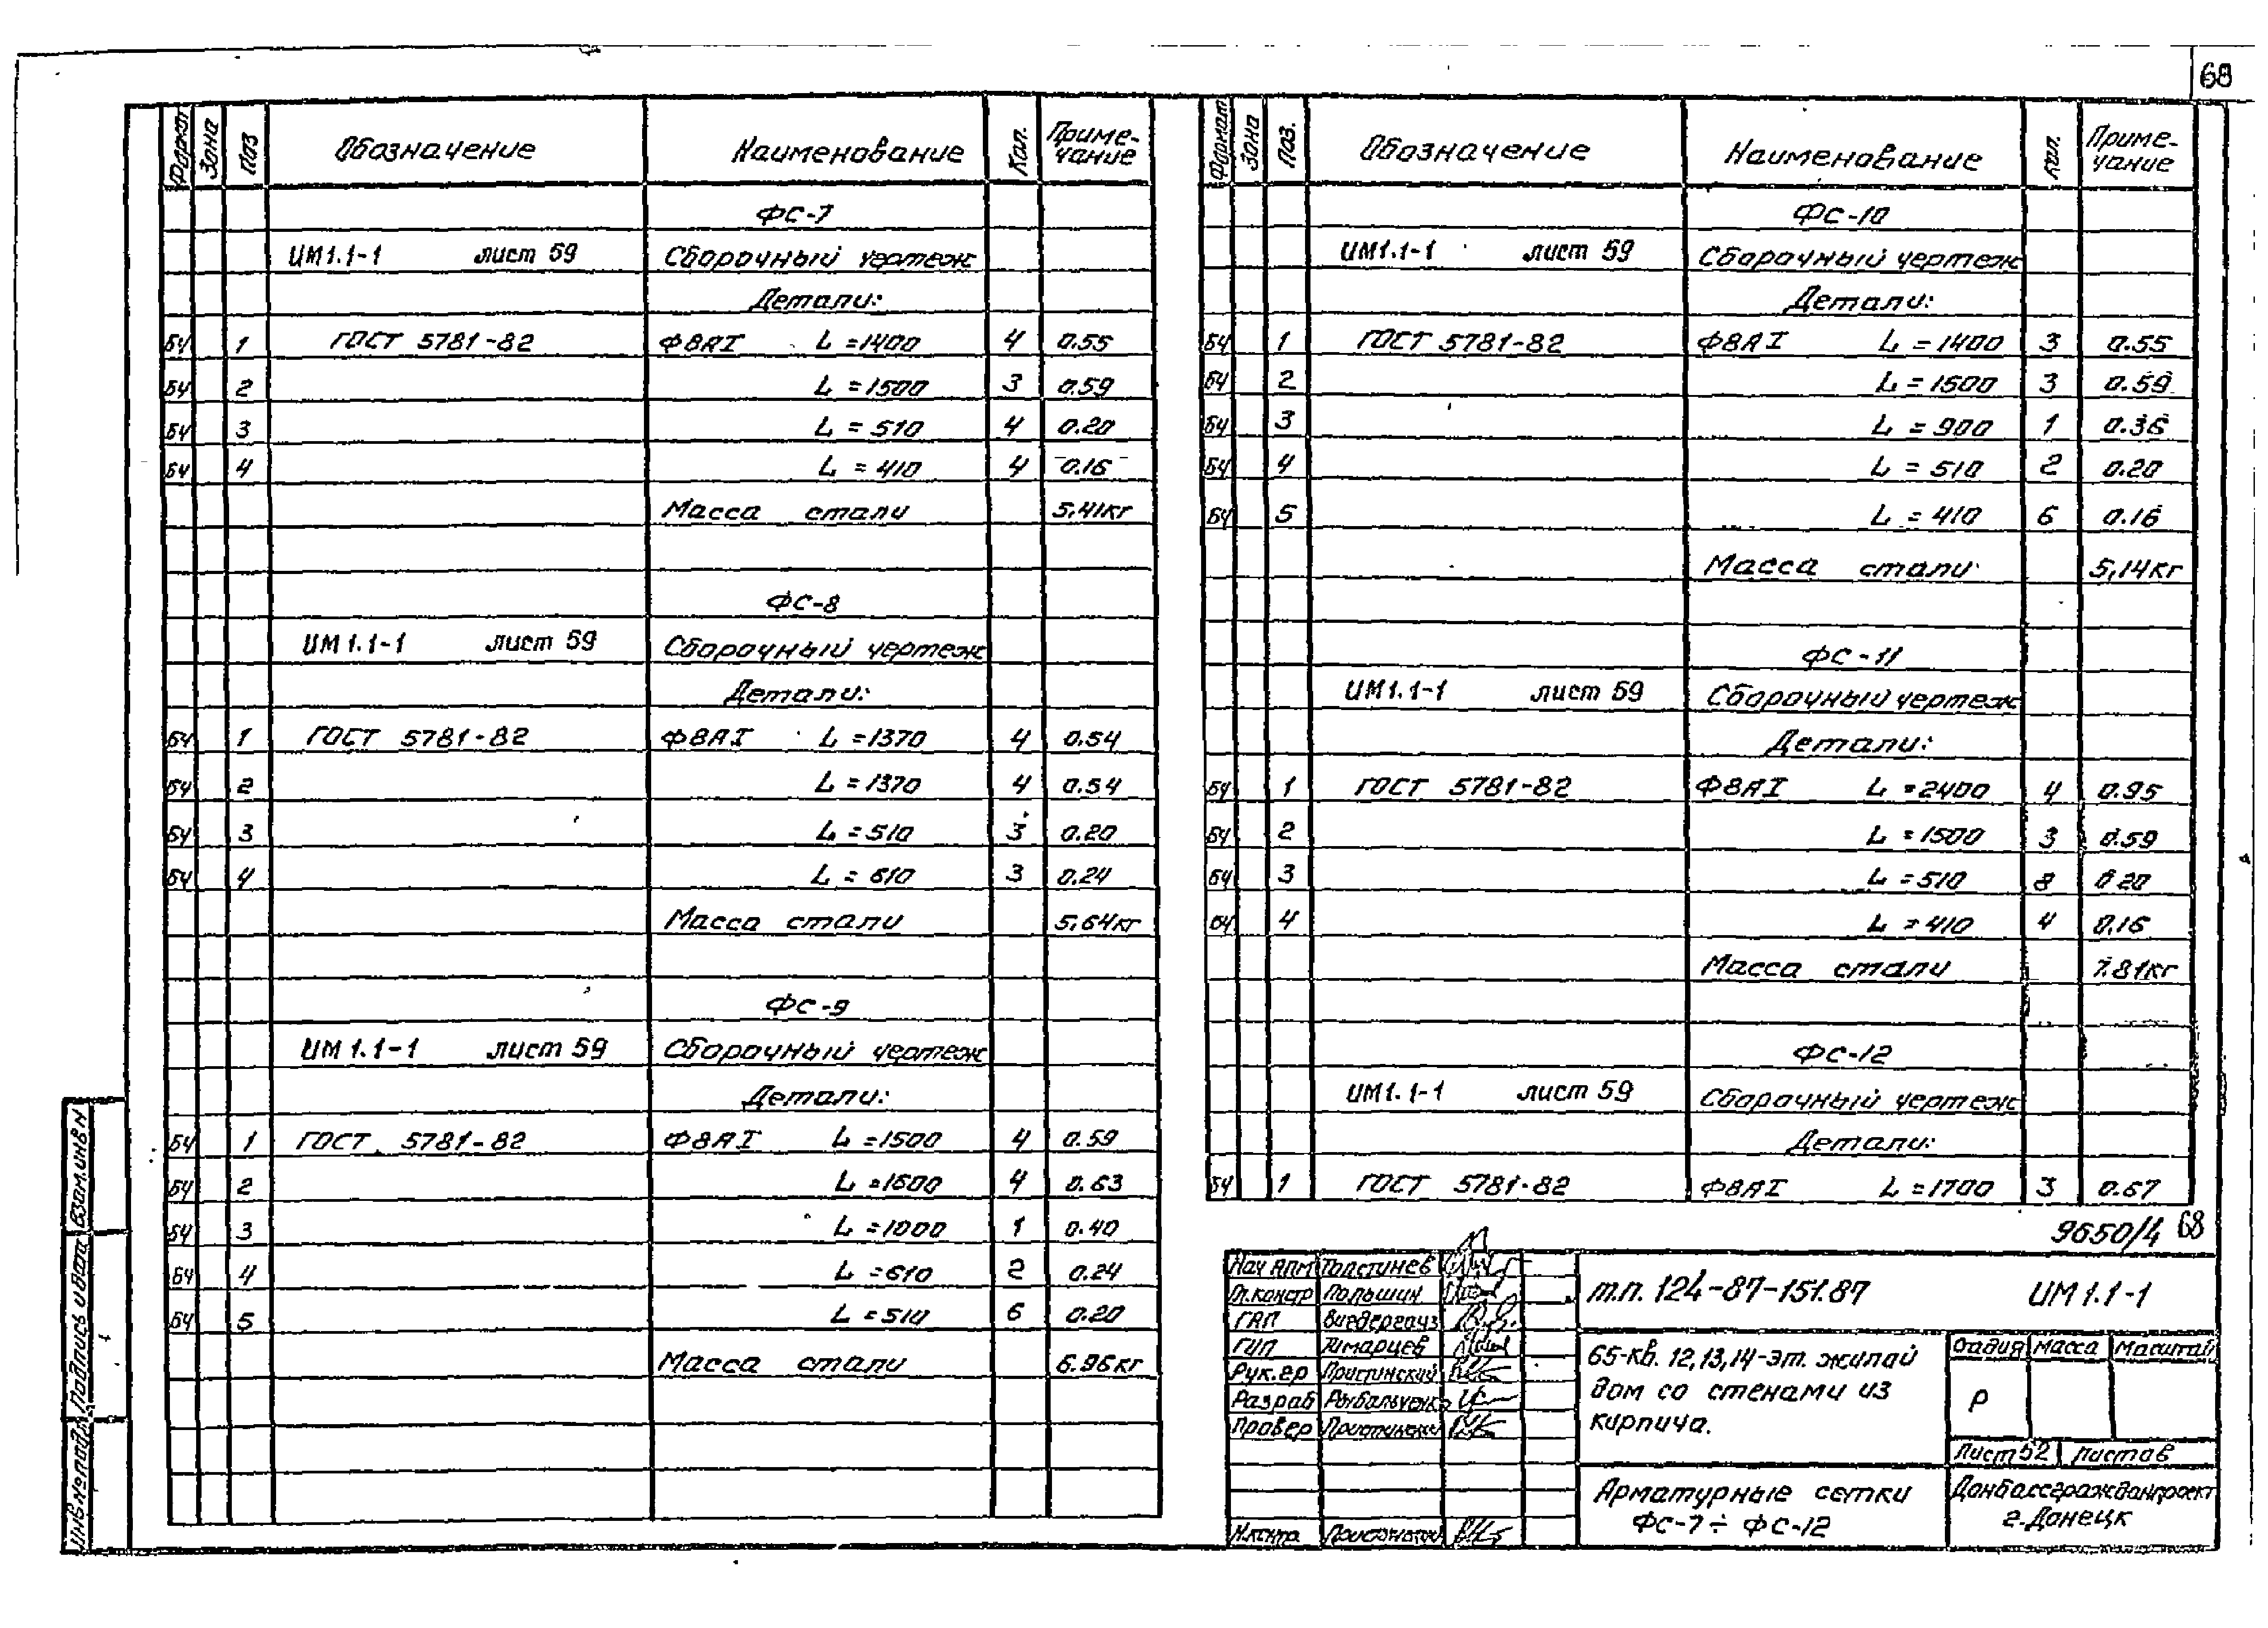 68
Формат Зона Поз Обозначение Наименование Кол. Приме-чание
ФС-7
ИМ1.1-1 лист 59 Сборочный чертеж
Детали:
БЧ 1 ГОСТ 5781-82 Ф8АI L=1400 4 0.55
БЧ 2 L=1500 3 0.59
БЧ 3 L=510 4 0.20
БЧ 4 L=410 4 0.16
Масса стали 5,41кг
ФС-8
ИМ1.1-1 лист 59 Сборочный чертеж
Детали:
БЧ 1 ГОСТ 5781-82 Ф8АI L=1370 4 0.54
БЧ 2 L=1370 4 0.54
БЧ 3 L=510 3 0.20
БЧ 4 L=610 3 0.24
Масса стали 5,64кг
ФС-9
ИМ1.1-1 лист 59 Сборочный чертеж
Детали:
БЧ 1 ГОСТ 5781-82 Ф8АI L=1500 4 0.59
БЧ 2 L=1600 4 0.63
БЧ 3 L=1000 1 0.40
БЧ 4 L=610 2 0.24
БЧ 5 L=510 6 0.20
Масса стали 6.96кг
Формат Зона Поз. Обозначение Наименование Кол. Приме-чание
ФС-10
ИМ1.1-1 лист 59 Сборочный чертеж
Детали:
БЧ 1 ГОСТ 5781-82 Ф8АI L=1400 3 0.55
БЧ 2 L=1500 3 0.59
БЧ 3 L=900 1 0.36
БЧ 4 L=510 2 0.20
БЧ 5 L=410 6 0.16
Масса стали 5,14кг
ФС-11
ИМ1.1-1 лист 59 Сборочный чертеж
Детали:
БЧ 1 ГОСТ 5781-82 Ф8АI L=2400 4 0.95
БЧ 2 L=1500 3 0.59
БЧ 3 L=510 8 0.20
БЧ 4 L=410 4 0.16
Масса стали 7.81кг
ФС-12
ИМ1.1-1 лист 59 Сборочный чертеж
Детали:
БЧ 1 ГОСТ 5781-82 Ф8АI L=1700 3 0.67
9650/4 68
Нач АПМ Толстичев
Гл.констр Польшин
ГАП
ГИП
Рук.гр Пристинский
Разраб
Провер
Н.контр
т.п. 124-87-151.87 ИМ1.1-1
65-кв. 12,13,14-эт. жилой
дом со стенами из
кирпича.
Стадия Масса Масштаб
Р
Лист 52 Листов
Арматурные сетки
ФС-7÷ФС-12
Донбассгражданпроект
г.Донецк
Взам.инв N
Подпись и дата
Инв№подл